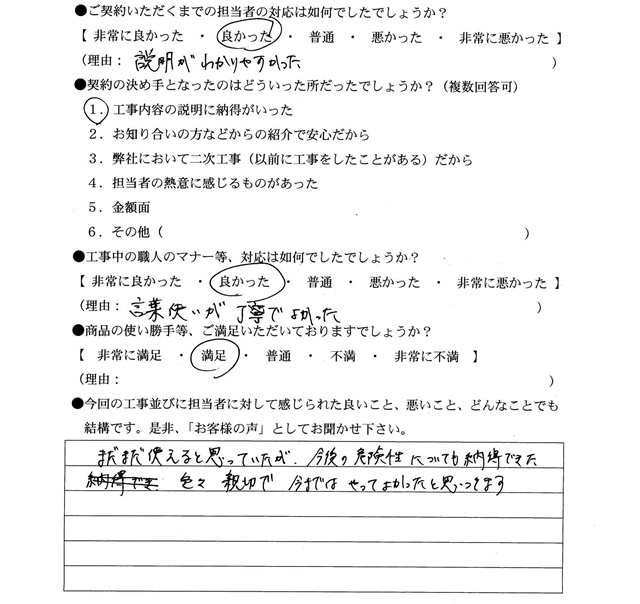 ●ご契約いただくまでの担当者の対応は如何でしたでしょうか？
【 非常に良かった ・ 良かった ・ 普通 ・ 悪かった ・ 非常に悪かった 】
(理由： 説明がわかりやすかった )
●契約の決め手となったのはどういった所だったでしょうか？（複数回答可）
１．工事内容の説明に納得がいった
２．お知り合いの方などからの紹介で安心だから
３．弊社において二次工事（以前に工事をしたことがある）だから
４．担当者の熱意に感じるものがあった
５．金額面
６．その他（ ）
●工事中の職人のマナー等、対応は如何でしたでしょうか？
【 非常に良かった ・ 良かった ・ 普通 ・ 悪かった ・ 非常に悪かった 】
(理由： 言葉使いが丁寧でよかった )
●商品の使い勝手等、ご満足いただいておりますでしょうか？
【 非常に満足 ・ 満足 ・ 普通 ・ 不満 ・ 非常に不満 】
(理由： )
●今回の工事並びに担当者に対して感じられた良いこと、悪いこと、どんなことでも
結構です。是非、「お客様の声」としてお聞かせ下さい。
まだまだ使えると思っていたが、今後の危険性についても納得できた
納得でき 色々 親切で 今ではやってよかったと思ってます